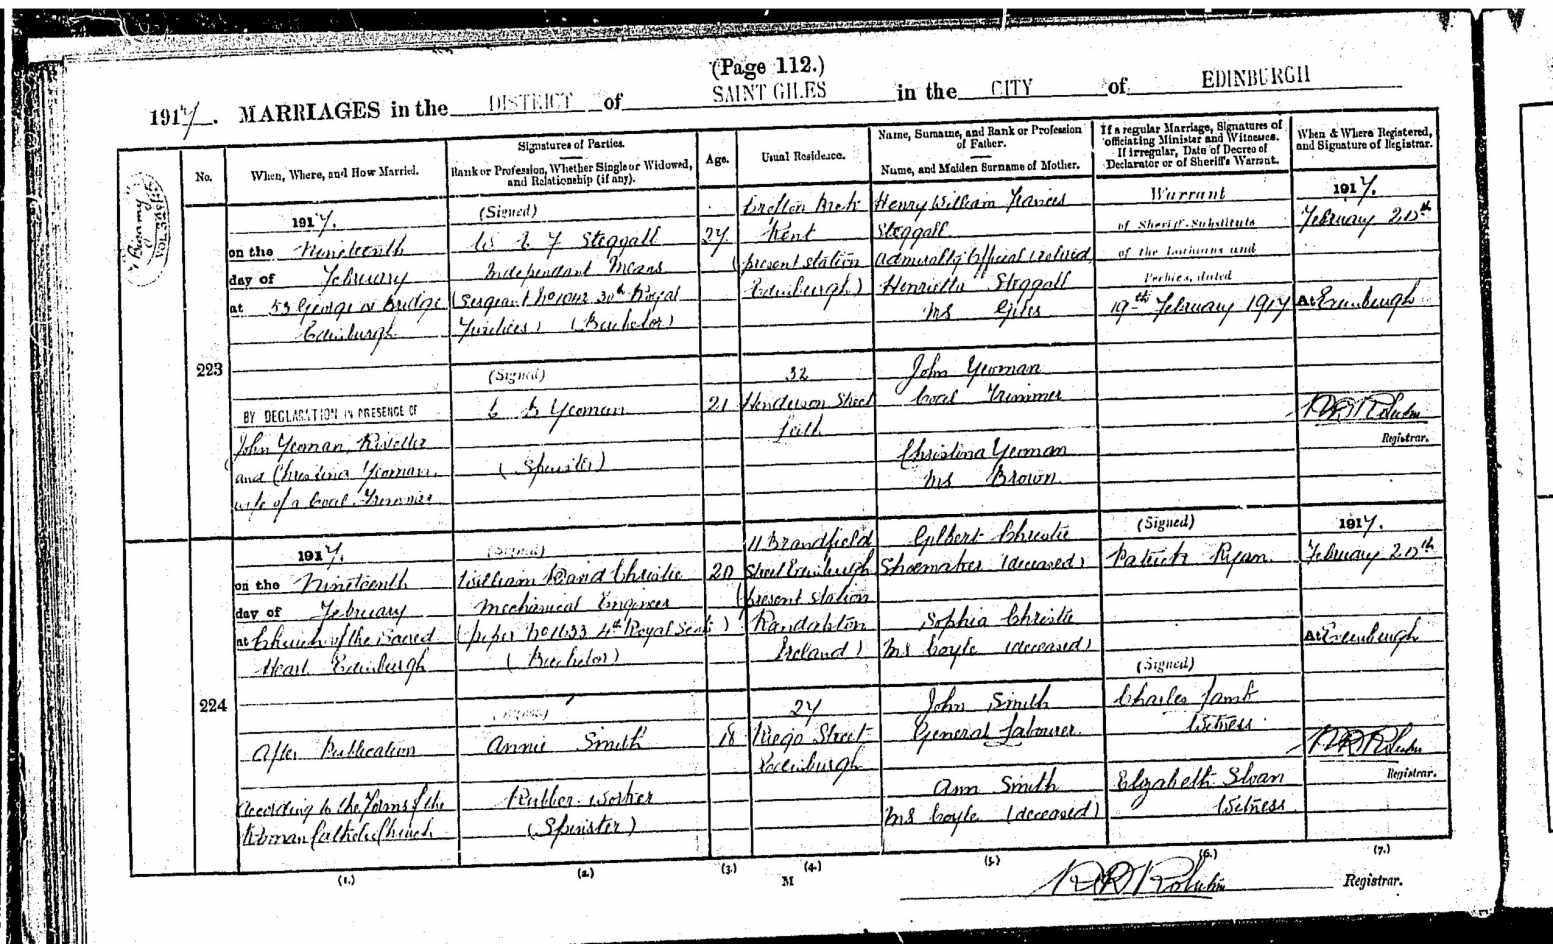 (Page 112.)
1917. MARRIAGES in the DISTRICT of SAINT GILES in the CITY of EDINBURGH
No.
When, Where, and How Married.
Signatures of Parties.
Rank or Profession, Whether Single or Widowed,
and Relationship (if any).
Age.
Usual Residence.
Name, Surname, and Rank or Profession
of Father.
Name, and Maiden Surname of Mother.
If a regular Marriage, Signatures of
officiating Minister and Witnesses.
If irregular, Date of Decree of
Declarator or of Sheriff's Warrant.
When & Where Registered,
and Signature of Registrar.
223
1917.
on the Nineteenth
day of February
at 53 George IV Bridge
Edinburgh
BY DECLARATION IN PRESENCE OF
John Yeoman, Riveter
and Christina Yeoman,
wife of a Coal Trimmer
(Signed)
Steggall
Independent Means
(Sergeant No 30th Royal
Fusiliers) (Bachelor)
(Signed)
Yeoman
(Spinster)
27
21
Kent
(present station
Edinburgh)
32
Henderson Street
Leith
Henry William Francis
Steggall
Admiralty Official retired
Henrietta Steggall
MS Giles
John Yeoman
Coal Trimmer
Christina Yeoman
MS Brown
Warrant
of Sheriff-Substitute
of the Lothians and
Peebles, dated
19th February 1917
1917.
February 20th
At Edinburgh
Registrar.
224
1917.
on the Nineteenth
day of February
at Church of the Sacred
Heart Edinburgh
After Publication
according to the Forms of the
Roman Catholic Church
(Signed)
William David Christie
Mechanical Engineer
No 1633 4th Royal Scots)
(Bachelor)
(Signed)
Annie Smith
Rubber Worker
(Spinster)
20
18
11 Brandfield
Street Edinburgh
(present station
Randalston
Ireland)
27
Riego Street
Edinburgh
Gilbert Christie
Shoemaker (deceased)
Sophia Christie
MS Coyle (deceased)
John Smith
General Labourer
Ann Smith
MS Coyle (deceased)
(Signed)
Patrick Ryan
(Signed)
Charles Lamb
Witness
Elizabeth Sloan
Witness
1917.
February 20th
At Edinburgh
Registrar.
(1.) (2.) (3.) (4.) (5.) (6.) (7.)
M
Registrar.